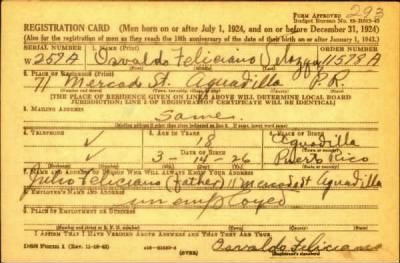 293
Form Approved
REGISTRATION CARD (Men born on or after July 1, 1924, and on or before December 31, 1924)
(Also for the registration of men as they reach the 18th anniversary of the date of their birth on or after January 1, 1943.)
SERIAL NUMBER 1. NAME (Print) ORDER NUMBER
W 259A Osvaldo Feliciano 11578A
2. PLACE OF RESIDENCE (Print)
11 Mercado St. Aguadilla P.R.
[THE PLACE OF RESIDENCE GIVEN ON LINE 2 ABOVE WILL DETERMINE LOCAL BOARD
JURISDICTION; LINE 2 OF REGISTRATION CERTIFICATE WILL BE IDENTICAL]
3. MAILING ADDRESS
Same
4. TELEPHONE 5. AGE IN YEARS 6. PLACE OF BIRTH
18 Aguadilla
DATE OF BIRTH
3-14-26 Puerto Rico
7. NAME AND ADDRESS OF PERSON WHO WILL ALWAYS KNOW YOUR ADDRESS
Julio Feliciano (father) 11 Mercado St Aguadilla
8. EMPLOYER'S NAME AND ADDRESS
unemployed
9. PLACE OF EMPLOYMENT OR BUSINESS
I AFFIRM THAT I HAVE VERIFIED ABOVE ANSWERS AND THAT THEY ARE TRUE.
DSS Form 1 (OVER) Osvaldo Feliciano
(Registrant's signature)